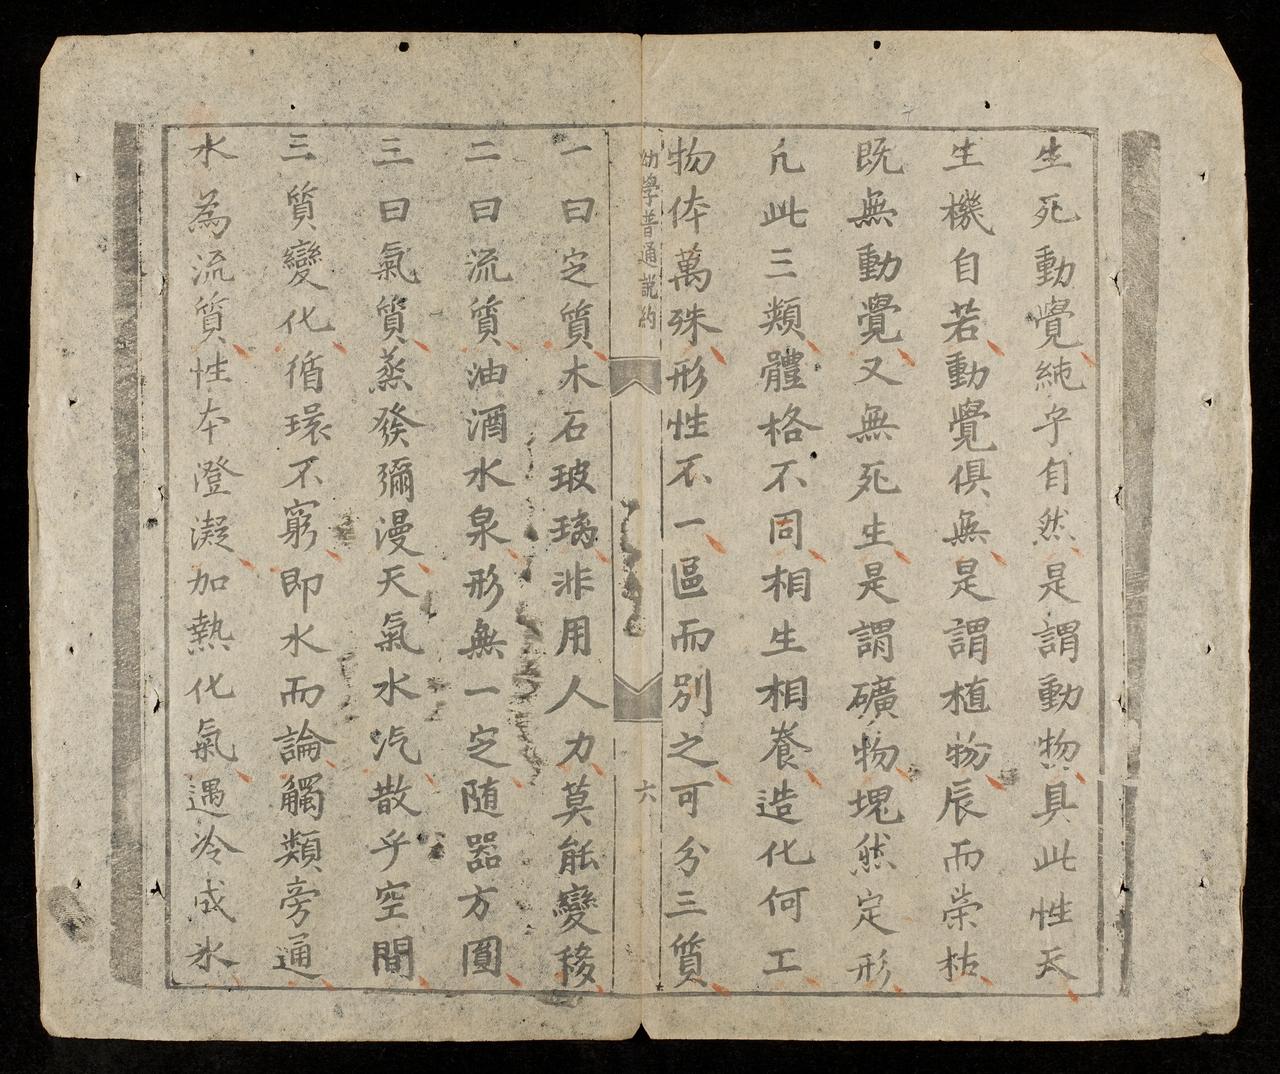 生死動覺純乎自然是謂動物具此性天
生機自若動覺俱無是謂植物辰而荣枯
既無動覺又無死生是謂礦物塊然定形
凢此三類體格不同相生相養造化何工
物体萬殊形性不一區而别之可分三質
幼學普通説約
六
一曰㝎質木石玻璃非用人力莫能變移
二曰流質油酒水泉形無一㝎随器方圓
三曰氣質蒸發彌漫天氣水汽散乎空間
三質變化循環不窮即水而論觸類旁通
水為流質性本澄凝加熱化氣遇冷成氷